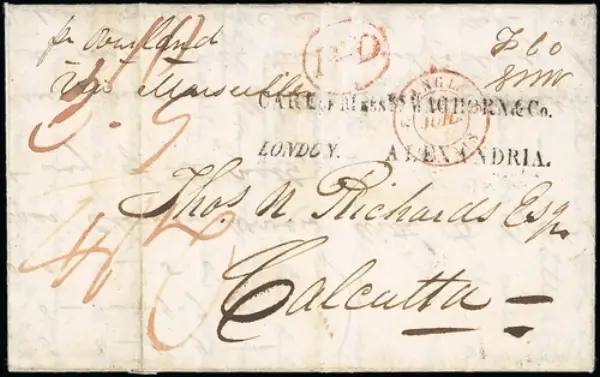 pr Overland
Via Marseilles
PD
CARE OF MESSRS WAGHORN & Co.
LONDON. ALEXANDRIA.
Thos N. Richards Esqr
Calcutta